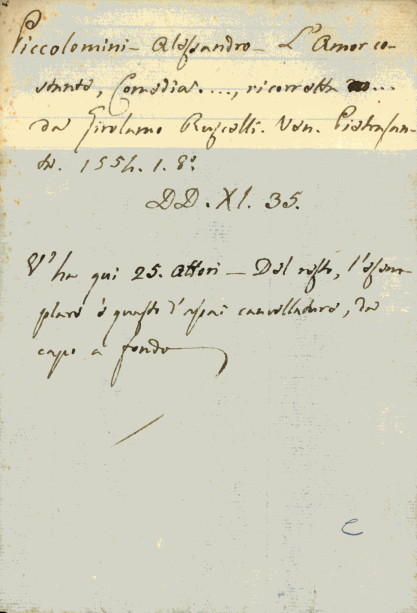 Piccolomini - Alessandro - L'Amor co-
stante, Comedia...., ricorretta ...
da Girolamo Ruscelli. Ven. Pietrasan-
ta. 1554. 1. 8º
DD. XI. 35.
V'ha qui 25. Attori - Del resto, l'esem-
plare è guasto d'assai cancellature, da
capo a fondo
C